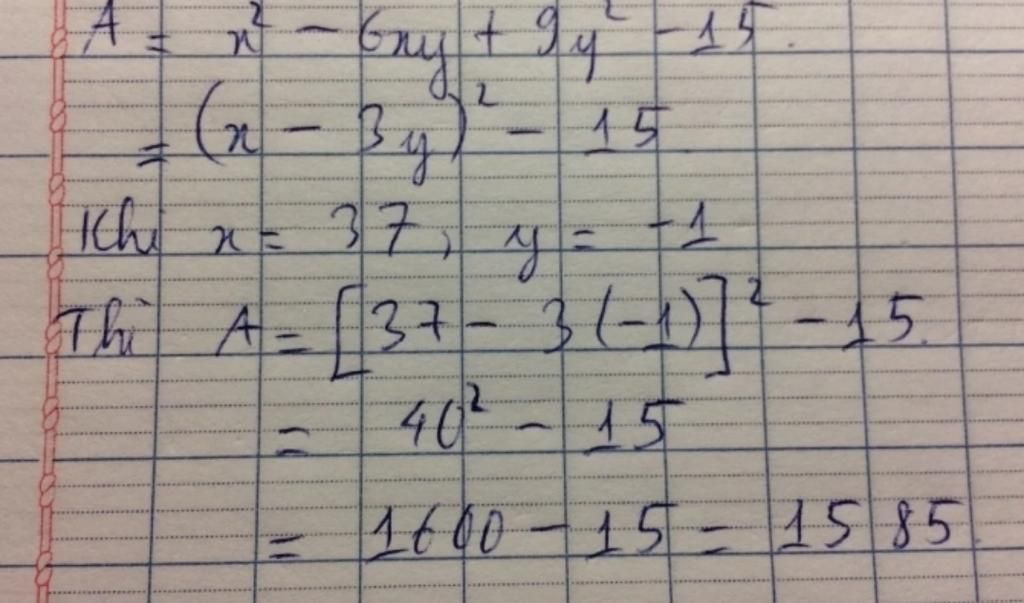 A = x² - 6xy + 9y² - 15.
= (x - 3y)² - 15
Khi x = 37, y = -1
Thì A = [37 - 3(-1)]² - 15.
= 40² - 15
= 1600 - 15 = 1585.